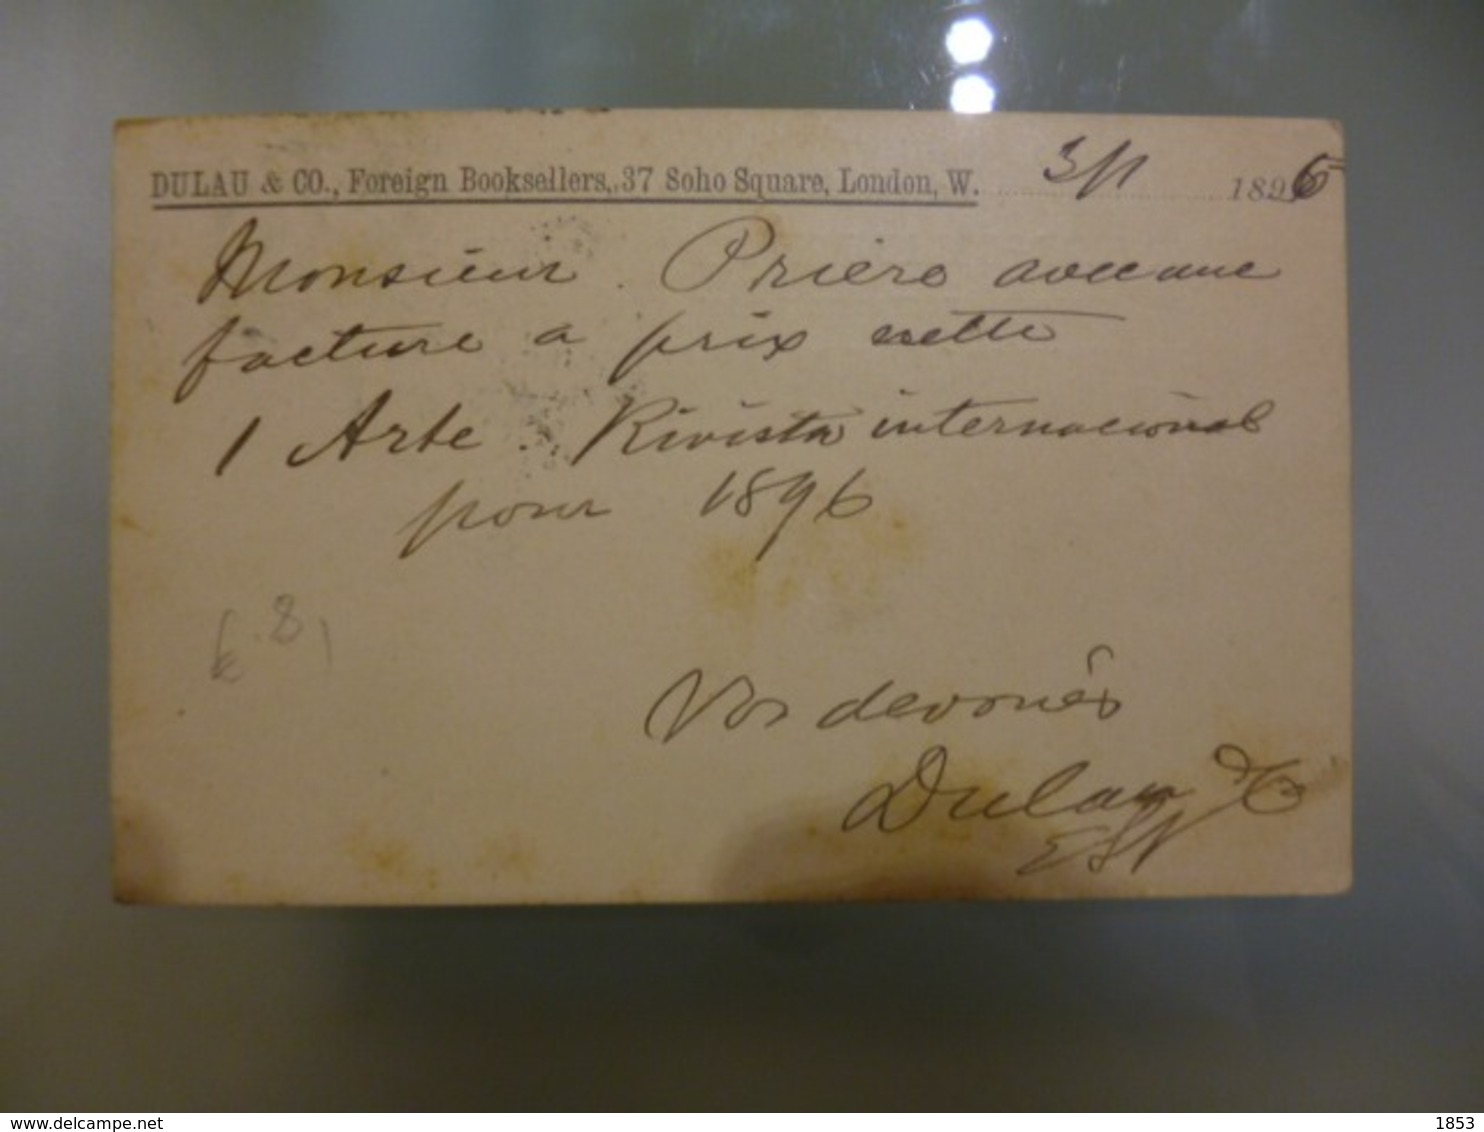 DULAU & CO., Foreign Booksellers, 37 Soho Square, London, W. 3/1 1896
Monsieur. Priere avec une
facture a prix nette
1 Arte. Rivista internacional
pour 1896
8
Vos devoués
Dulau & Co
delcampe.net
1853